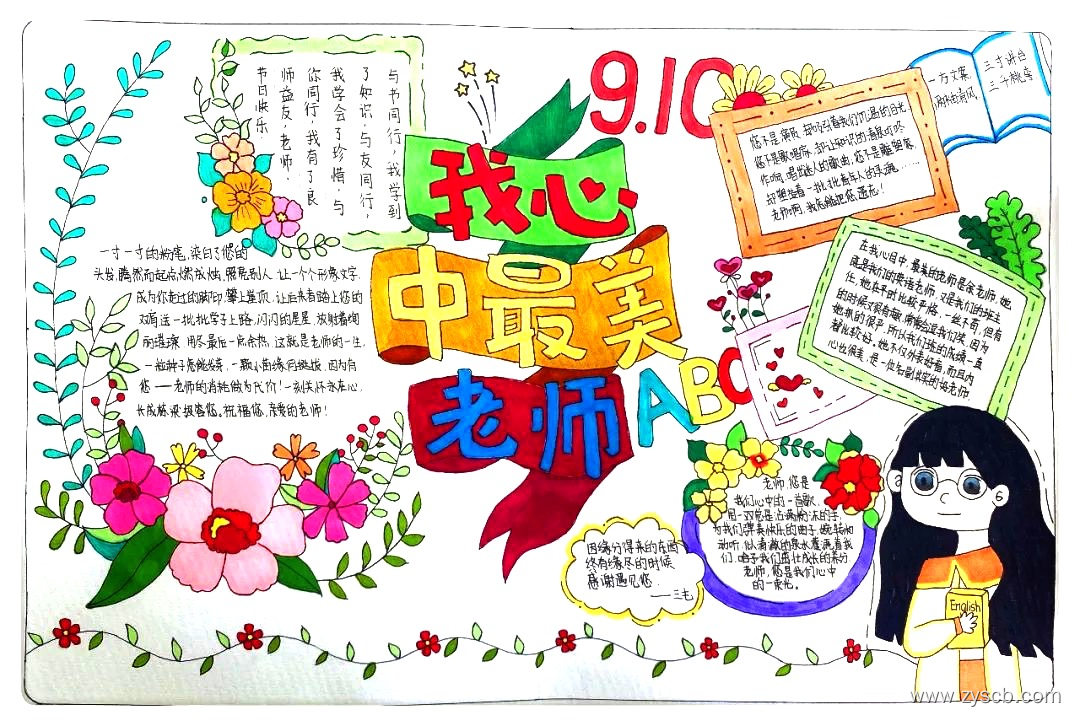 我心
中最美
老师
9.10
ABC
与书同行，我学到
了知识，与友同行，
我学会了珍惜，与
你同行，我有了良
师益友，老师，
节日快乐
一寸一寸的粉笔，染白了您的
头发，腾然而起点燃成烛，照亮别人 让一个个形象文字，
成为你走过的脚印，攀上巅顶，让后来者踏上您的
双肩 送一批批学子上路，闪闪的星星 放射着绚
丽璀璨 用尽最后一点余热，这就是老师的一生。
因为有
您——老师的消耗做为代价！一刻关怀永在心，
祝福您，亲爱的老师！
您不是演员，却吸引着我们饥渴的目光
您不是歌唱家，却让知识的清泉叮咚
作响，唱出迷人的歌曲，您不是雕塑家
却塑造着一批批青年人的灵魂……
老师啊，我怎能把您遗忘！
三寸讲台
三千桃李
一方文案，
两袖清风，
在我心目中，最美的老师是徐老师，她
就是我们的英语老师，又是我们的班主
任，她在平时比较严格，一丝不苟，但有
的时候又很有趣，常常会逗我们笑，因为
她抓的很严，所以我们班的成绩一直
都比较好，她不仅外表好看，而且内
心也很美，是一位名副其实的好老师。
老师，您是
我们心中的一首歌，
用一双总是沾满粉沫的手，
为我们弹奏快乐的曲子，婉转和
动听，似清澈的泉水灌溉着我
们，给予我们茁壮成长的养分
老师，您是我们心中
的一束光。
因缘分得来的东西
终有缘尽的时候
感谢遇见您
——三毛
English
www.zyscb.com